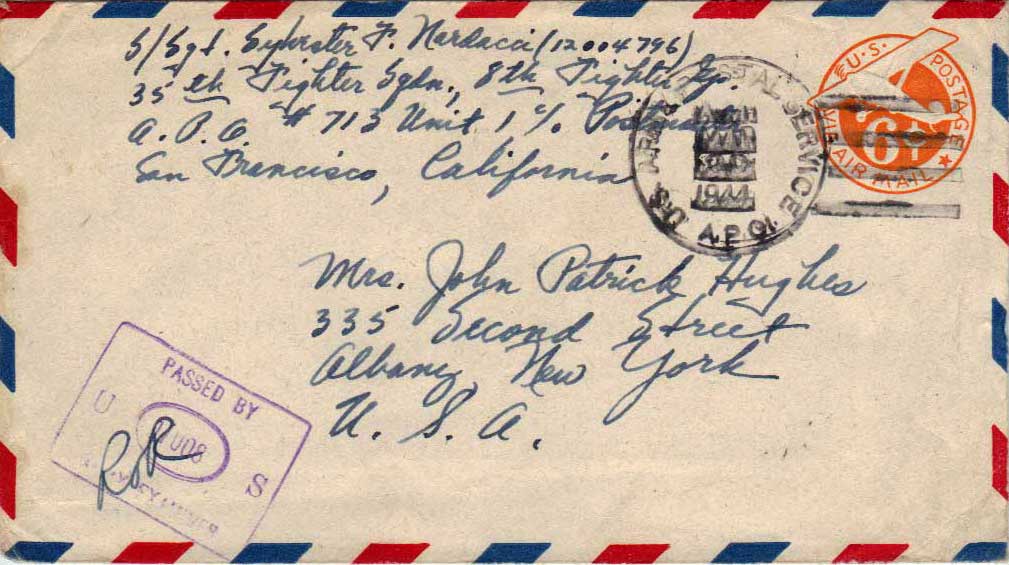 S/Sgt. Sylvester F. Nardacci (12004796)
35th Fighter Sqdn., 8th Fighter Gp.
A. P. O. # 713 Unit 1 c/o
San Francisco, California
U.S. ARMY POSTAL SERVICE
1944
A.P.O.
U.S. POSTAGE
6¢
VIA AIR MAIL
Mrs. John Patrick Hughes
335 Second Street
Albany, New York
U. S. A.
PASSED BY
U S
EXAMINER